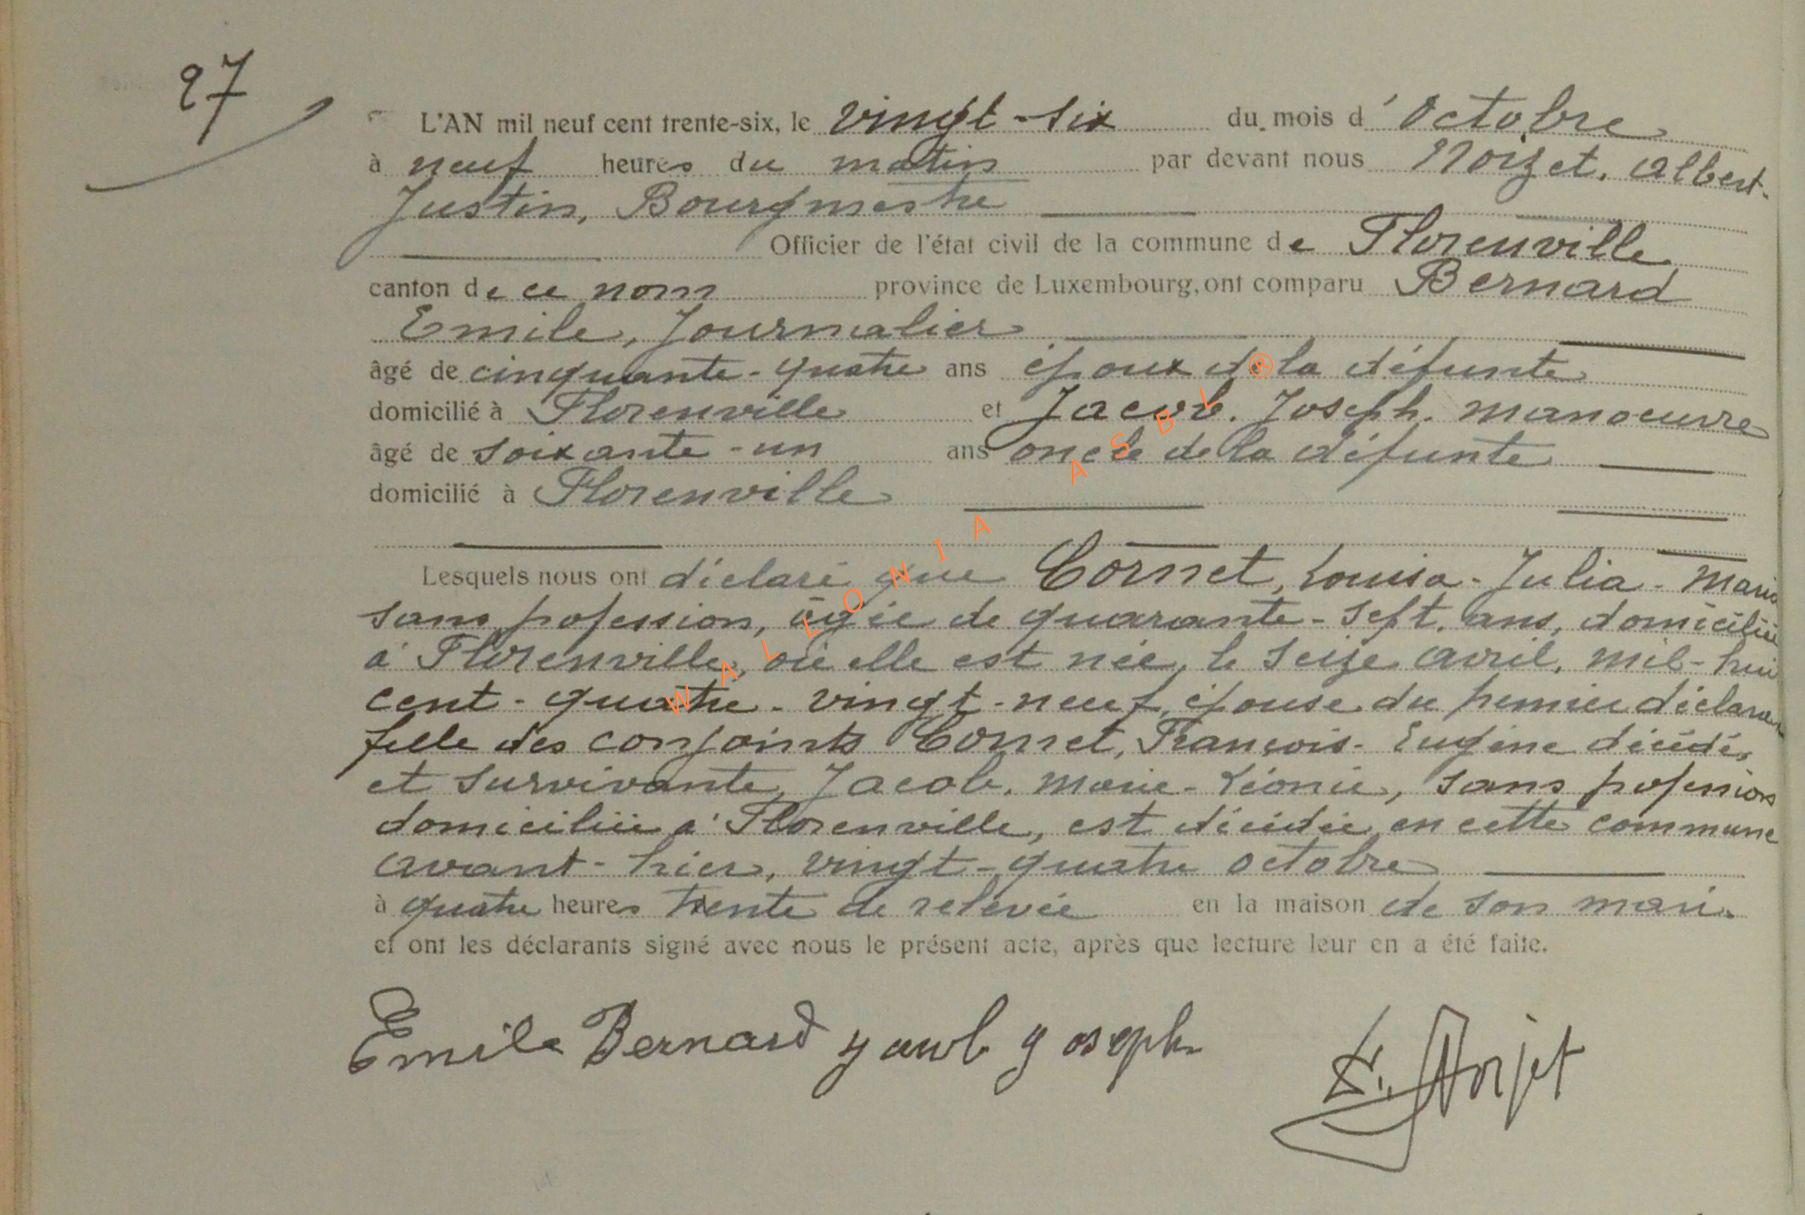 27
L'AN mil neuf cent trente-six, le vingt-six du mois d'Octobre
à neuf heures du matin par devant nous Noizet, Albert-
Justin, Bourgmestre
Officier de l'état civil de la commune de Florenville,
canton de ce nom province de Luxembourg, ont comparu Bernard
Emile, Journalier
âgé de cinquante-quatre ans époux de la défunte
domicilié à Florenville et Jacob, Joseph, manoeuvre
âgé de soixante-un ans oncle de la défunte
domicilié à Florenville
Lesquels nous ont déclaré que Cornet, Louisa-Julia-Marie
sans profession, âgée de quarante-sept ans, domiciliée
à Florenville, où elle est née, le seize avril, mil-hui
cent-quatre-vingt-neuf, épouse du premier déclaran
fille des conjoints Cornet, François-Eugène décédé,
et survivante, Jacob, Marie-Léonie, sans profession
domiciliée à Florenville, est décédée en cette commune
avant-hier, vingt-quatre octobre
à quatre heures trente de relevée en la maison de son mari.
et ont les déclarants signé avec nous le présent acte, après que lecture leur en a été faite.
Emile Bernard Jacob Joseph
Noizet
WALLONIA ASBL ®